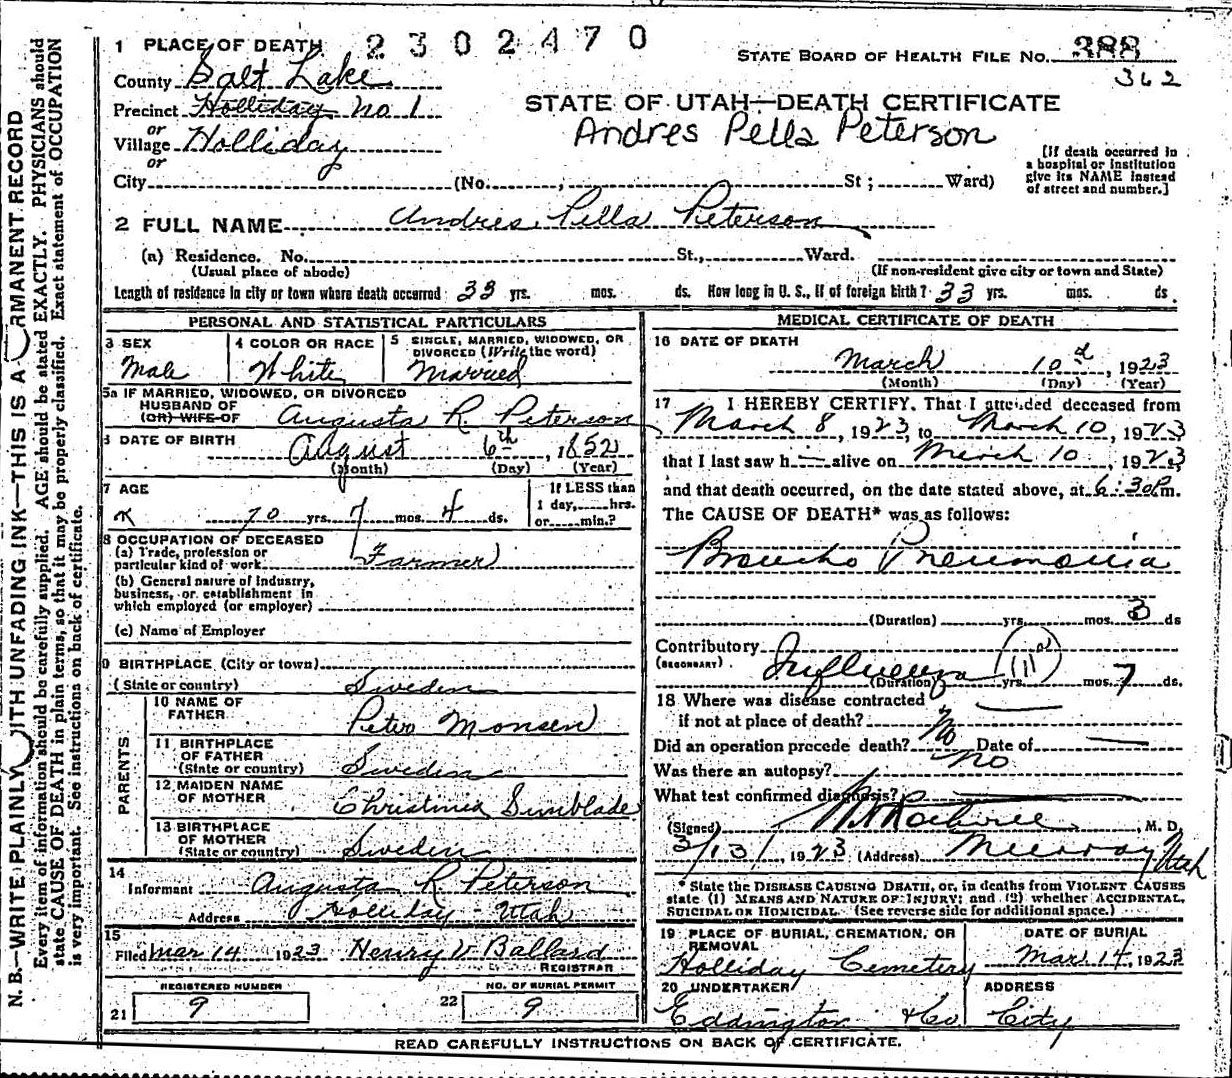 1 PLACE OF DEATH 2302470
STATE BOARD OF HEALTH FILE NO. 388
362
County Salt Lake
Precinct Holliday No 1
or
Village Holliday
or
City (No. , St ; Ward)
STATE OF UTAH—DEATH CERTIFICATE
Andres Pella Peterson
[If death occurred in
a hospital or institution
give its NAME instead
of street and number.]
2 FULL NAME Andres Pella Peterson
(a) Residence. No. St., Ward.
(Usual place of abode) (If non-resident give city or town and State)
Length of residence in city or town where death occurred 33 yrs. mos. ds. How long in U. S., if of foreign birth? 33 yrs. mos. ds.
PERSONAL AND STATISTICAL PARTICULARS
3 SEX
Male
4 COLOR OR RACE
White
5 SINGLE, MARRIED, WIDOWED, OR
DIVORCED (Write the word)
Married
5a IF MARRIED, WIDOWED, OR DIVORCED
HUSBAND OF
(OR) WIFE OF Augusta R. Peterson
DATE OF BIRTH
August 6th, 1852
(Month) (Day) (Year)
7 AGE
70 yrs. 7 mos. 4 ds.
If LESS than
1 day, hrs.
or min.?
8 OCCUPATION OF DECEASED
(a) Trade, profession or
particular kind of work Farmer
(b) General nature of industry,
business, or establishment in
which employed (or employer)
(c) Name of Employer
9 BIRTHPLACE (City or town)
(State or country) Sweden
PARENTS
10 NAME OF
FATHER Peter Monsen
11 BIRTHPLACE
OF FATHER
(State or country) Sweden
12 MAIDEN NAME
OF MOTHER Christinia
13 BIRTHPLACE
OF MOTHER
(State or country) Sweden
14
Informant Augusta R Peterson
Address Holliday Utah
15
Filed Mar 14 1923 Henry V Ballard
REGISTRAR
REGISTERED NUMBER
21 9
NO. OF BURIAL PERMIT
22 9
MEDICAL CERTIFICATE OF DEATH
16 DATE OF DEATH
March 10th, 1923
(Month) (Day) (Year)
17 I HEREBY CERTIFY, That I attended deceased from
March 8, 1923, to March 10, 1923
that I last saw h— alive on March 10, 1923
and that death occurred, on the date stated above, at 6:30 P.m.
The CAUSE OF DEATH* was as follows:
Broncho Pneumonia
(Duration) yrs. mos. 3 ds
Contributory Influenza
(SECONDARY)
(Duration) yrs. mos. 7 ds.
18 Where was disease contracted
if not at place of death?
Did an operation precede death? No Date of
Was there an autopsy? No
What test confirmed diagnosis?
(Signed) M. D.
3/13/, 1923 (Address) Murray Utah
* State the DISEASE CAUSING DEATH, or, in deaths from VIOLENT CAUSES
state (1) MEANS AND NATURE OF INJURY; and (2) whether ACCIDENTAL,
SUICIDAL OR HOMICIDAL. (See reverse side for additional space.)
19 PLACE OF BURIAL, CREMATION, OR
REMOVAL
Holliday Cemetery
DATE OF BURIAL
Mar 14, 1923
20 UNDERTAKER
Eddington & Co
ADDRESS
City
READ CAREFULLY INSTRUCTIONS ON BACK OF CERTIFICATE.
N. B.—WRITE PLAINLY WITH UNFADING INK—THIS IS A PERMANENT RECORD
Every item of information should be carefully supplied. AGE should be stated EXACTLY. PHYSICIANS should
state CAUSE OF DEATH in plain terms, so that it may be properly classified. Exact statement of OCCUPATION
is very important. See instructions on back of certificate.